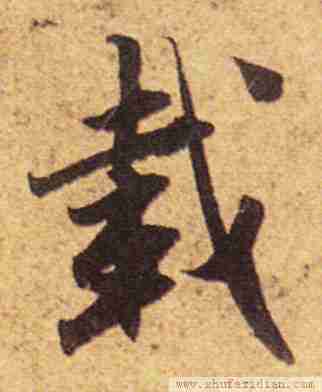 載
www.shufazidian.com